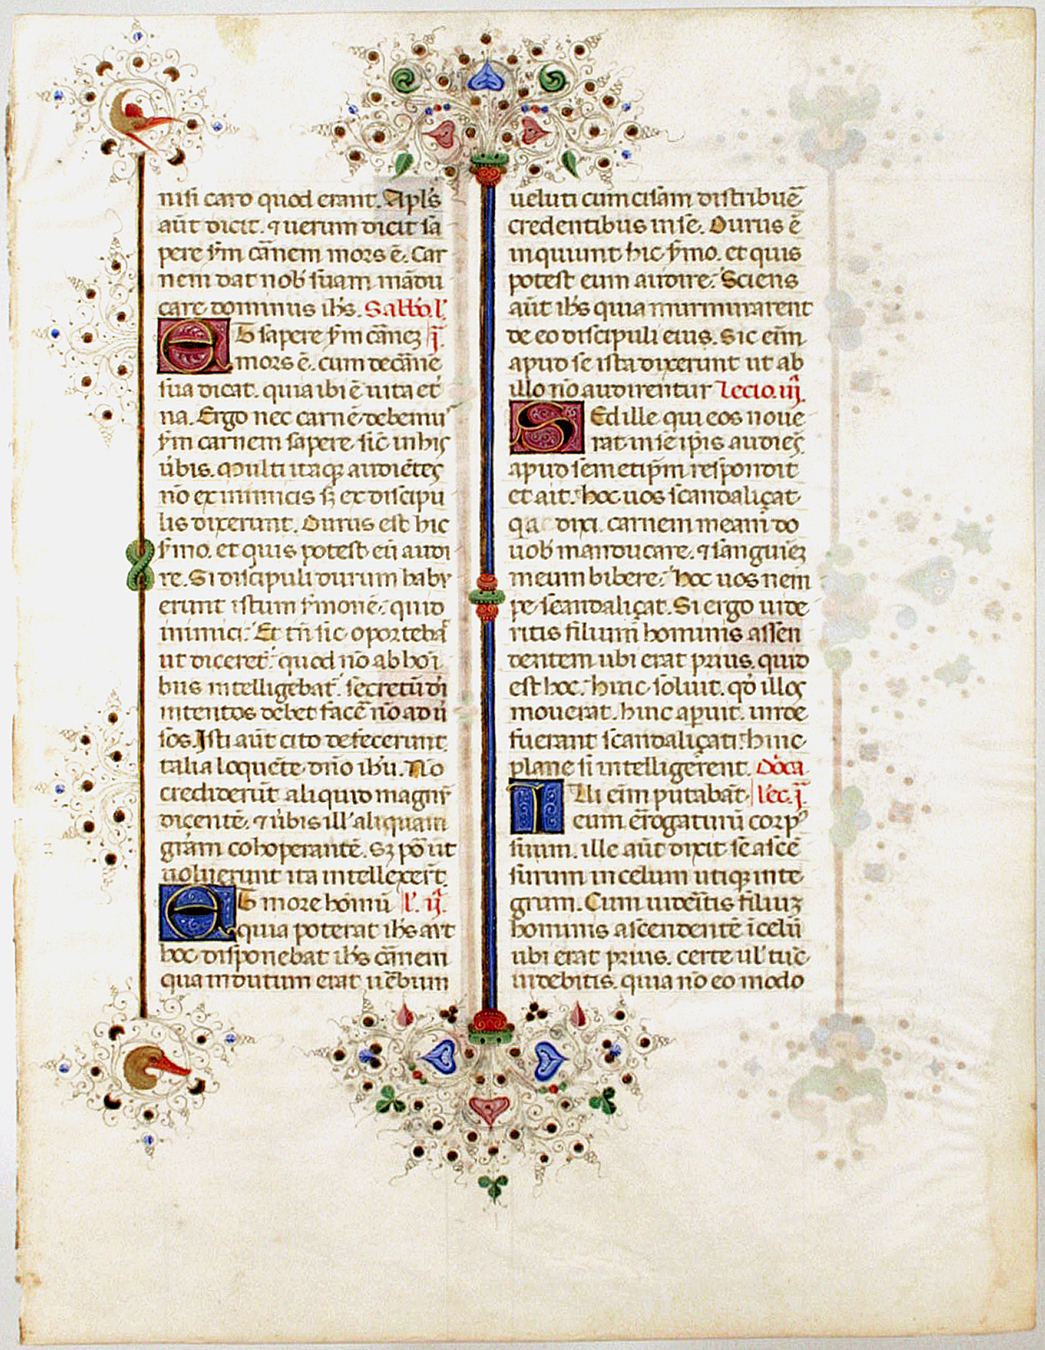 nisi caro quod erant. Apl's
aūt dicit. ⁊ uerum dicit sa
pere s̄m cāʳnem mors ē. Car
nem dat nob' suam mādu
care dominus ih̄s. Sabb'o. l'.
Et sapere s̄m cāʳneꝫ .j̄.
mors ē. cum de cāʳne
sua dicat. quia ibi ē uita et͛
na. Ergo nec carnē debemuſ
s̄m carnem sapere. sic in hiſ
ūbis. Multi itaqꝫ audiēteſ
nō ex inimicis sꝫ ex discipu
lis dixerunt. Durus est hic
s̄mo. et quis potest eū audi
re. Si discipuli durum habu
erunt istum s̄monē: quid
inimici: Et tn̄ sic oportebā
ut diceret͛: quod nō ab hōi
bus intelligebat͛. secretū di
intentos debet facē nō adū
sos. Isti aūt cito defecerunt
talia loquēte dn̄o ih̄u. No
crediderūt aliquid magnū
dicentē. ⁊ ūbis ill' aliquam
grām cohoperantē. Sꝫ p̄o ūt
uoluerunt ita intellexer̄t
Et more hōinū l'. ij̄.
quia poterat ih̄s aut
hoc disponebat ih̄s cāʳnem
qua indutum erat ūebum
ueluti cum cisam distribuē
credentibus in se. Durus ē
inquiunt hic s̄mo. et quis
potest eum audire: Sciens
aūt ih̄s quia murmurarent
de eo discipuli eius. Sic eīm
apud se ista dixerunt ut ab
illo nō audirentur Lectio. iij̄.
Sed ille qui eos noue
rat in se ip̄is audieſ
apud semetip̄m respondit
et ait. hoc uos scandaliçat
q a dixi. carnem meam do
uob' manducare. ⁊ sanguieꝫ
meum bibere: hoc uos nem
pe scandaliçat. Si ergo uide
ritis filium hominis assen
dentem ubi erat prius. quid
est hoc: hinc soluit. qd̄ illoſ
mouerat. hinc aꝑuit. unde
fuerant scandaliçati: hinc
plane si intelligerent. Dōca.
Illi eīm putabāt lec. j̄.
eum ērogaturū corpꝰ
suum. ille aūt dixit se ascē
surum in celum utiqꝫ inte
grum. Cum uideītis filiuꝫ
hominis ascendentē ī celū
ubi erat prius. certe ul' tūc
uidebitis. quia nō eo modo